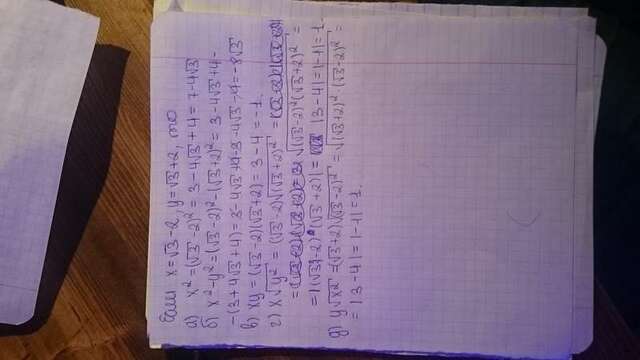 Если x=√3-2, y=√3+2, то
а) x²=(√3-2)²=3-4√3+4=7-4√3
б) x²-y²=(√3-2)²-(√3+2)²=3-4√3+4-
-(3+4√3+4)=3-4√3+4-3-4√3-4=-8√3
в) xy=(√3-2)(√3+2)=3-4=-1.
г) x√y²=(√3-2)√(√3+2)²=
=√(√3-2)²(√3+2)²=
=|(√3-2)·(√3+2)|=|3-4|=|-1|=1.
д) y√x²=(√3+2)√(√3-2)²=√(√3+2)²·(√3-2)²=
=|3-4|=|-1|=1.